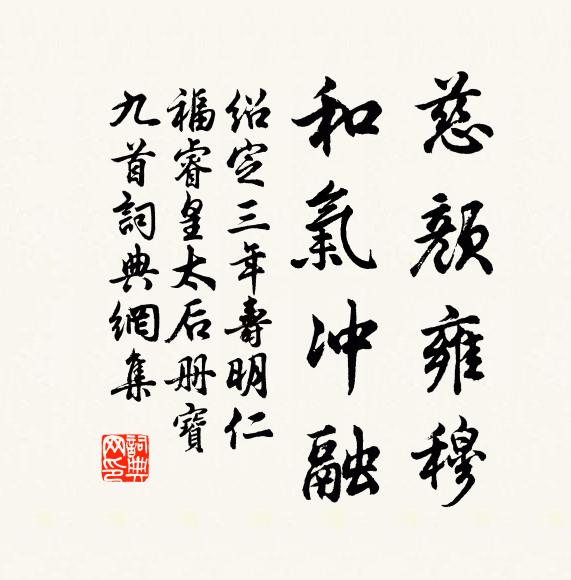 慈顔雍穆
和氣冲融
紹定三年壽明仁
福睿皇太后册寶
九首詞典網集
詞典网印